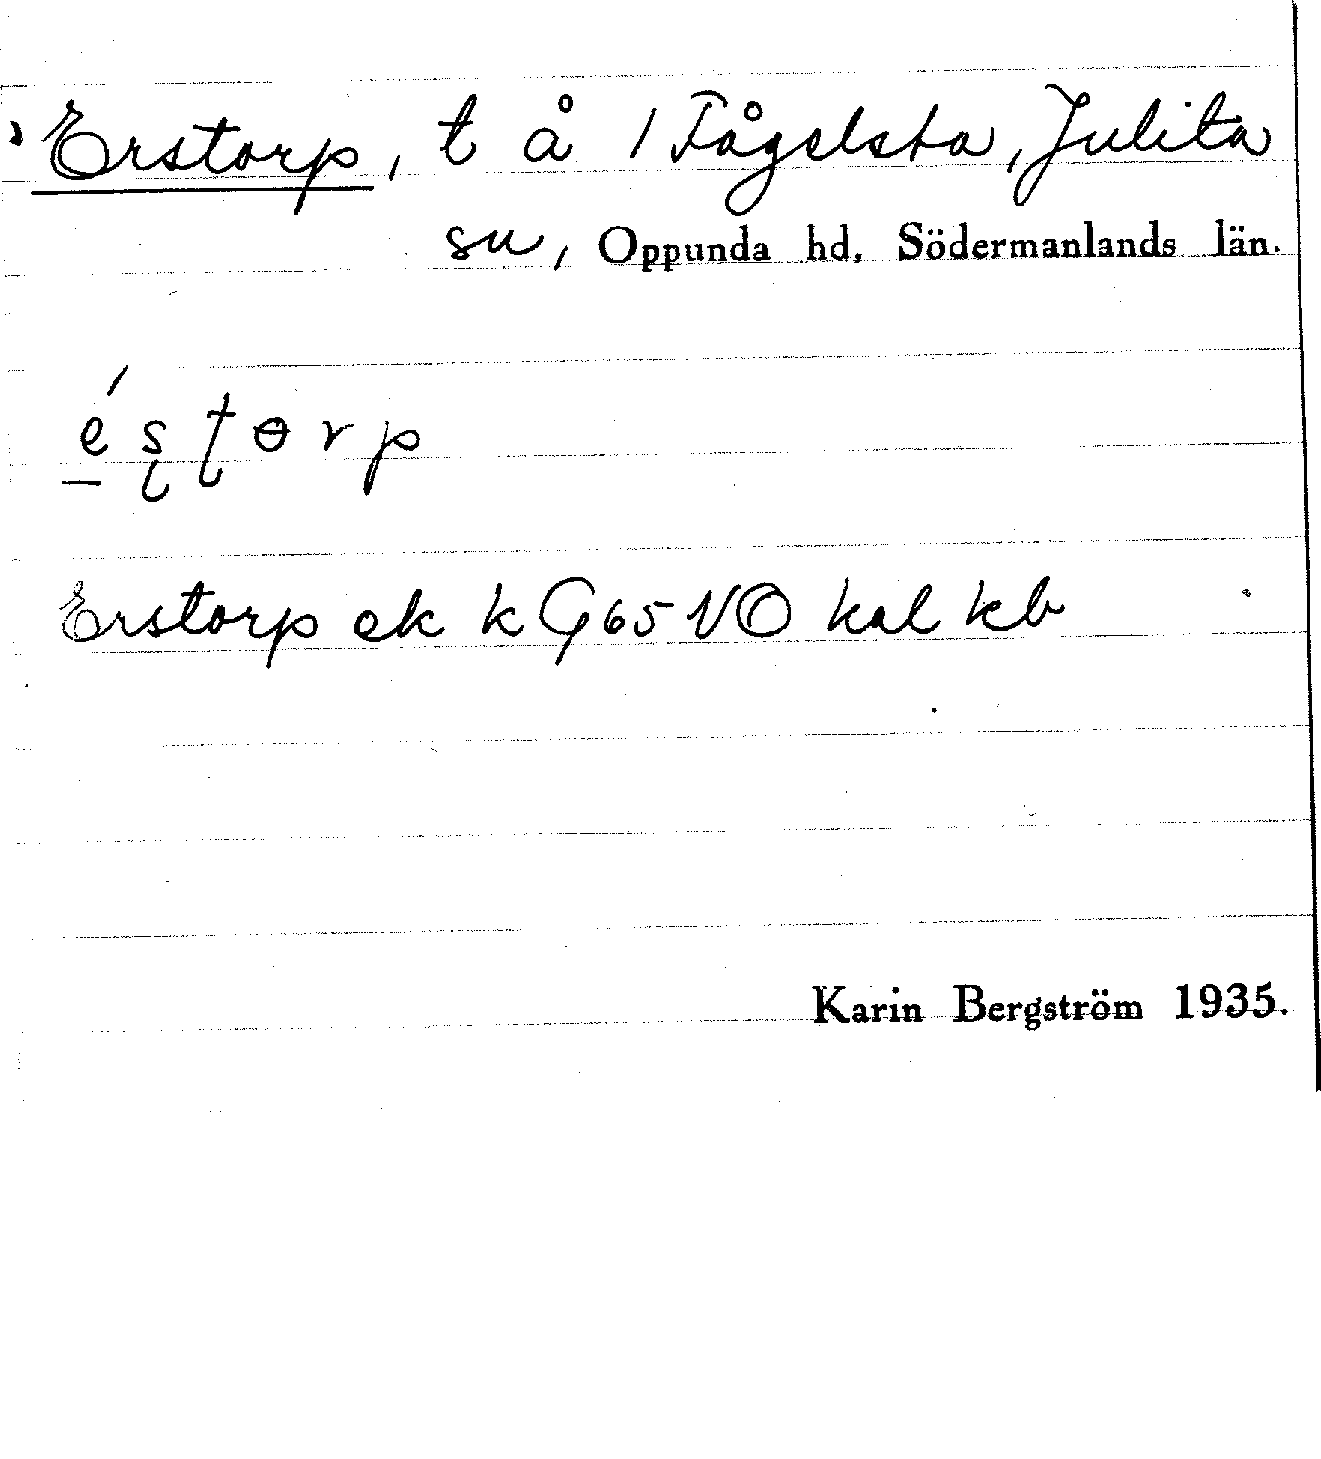 Erstorp, t å 1 Fågelsta, Julita
sn, Oppunda hd, Södermanlands län.
é̱ʂʈɵrp
Erstorp ek k G65 NO kal kb
Karin Bergström 1935.